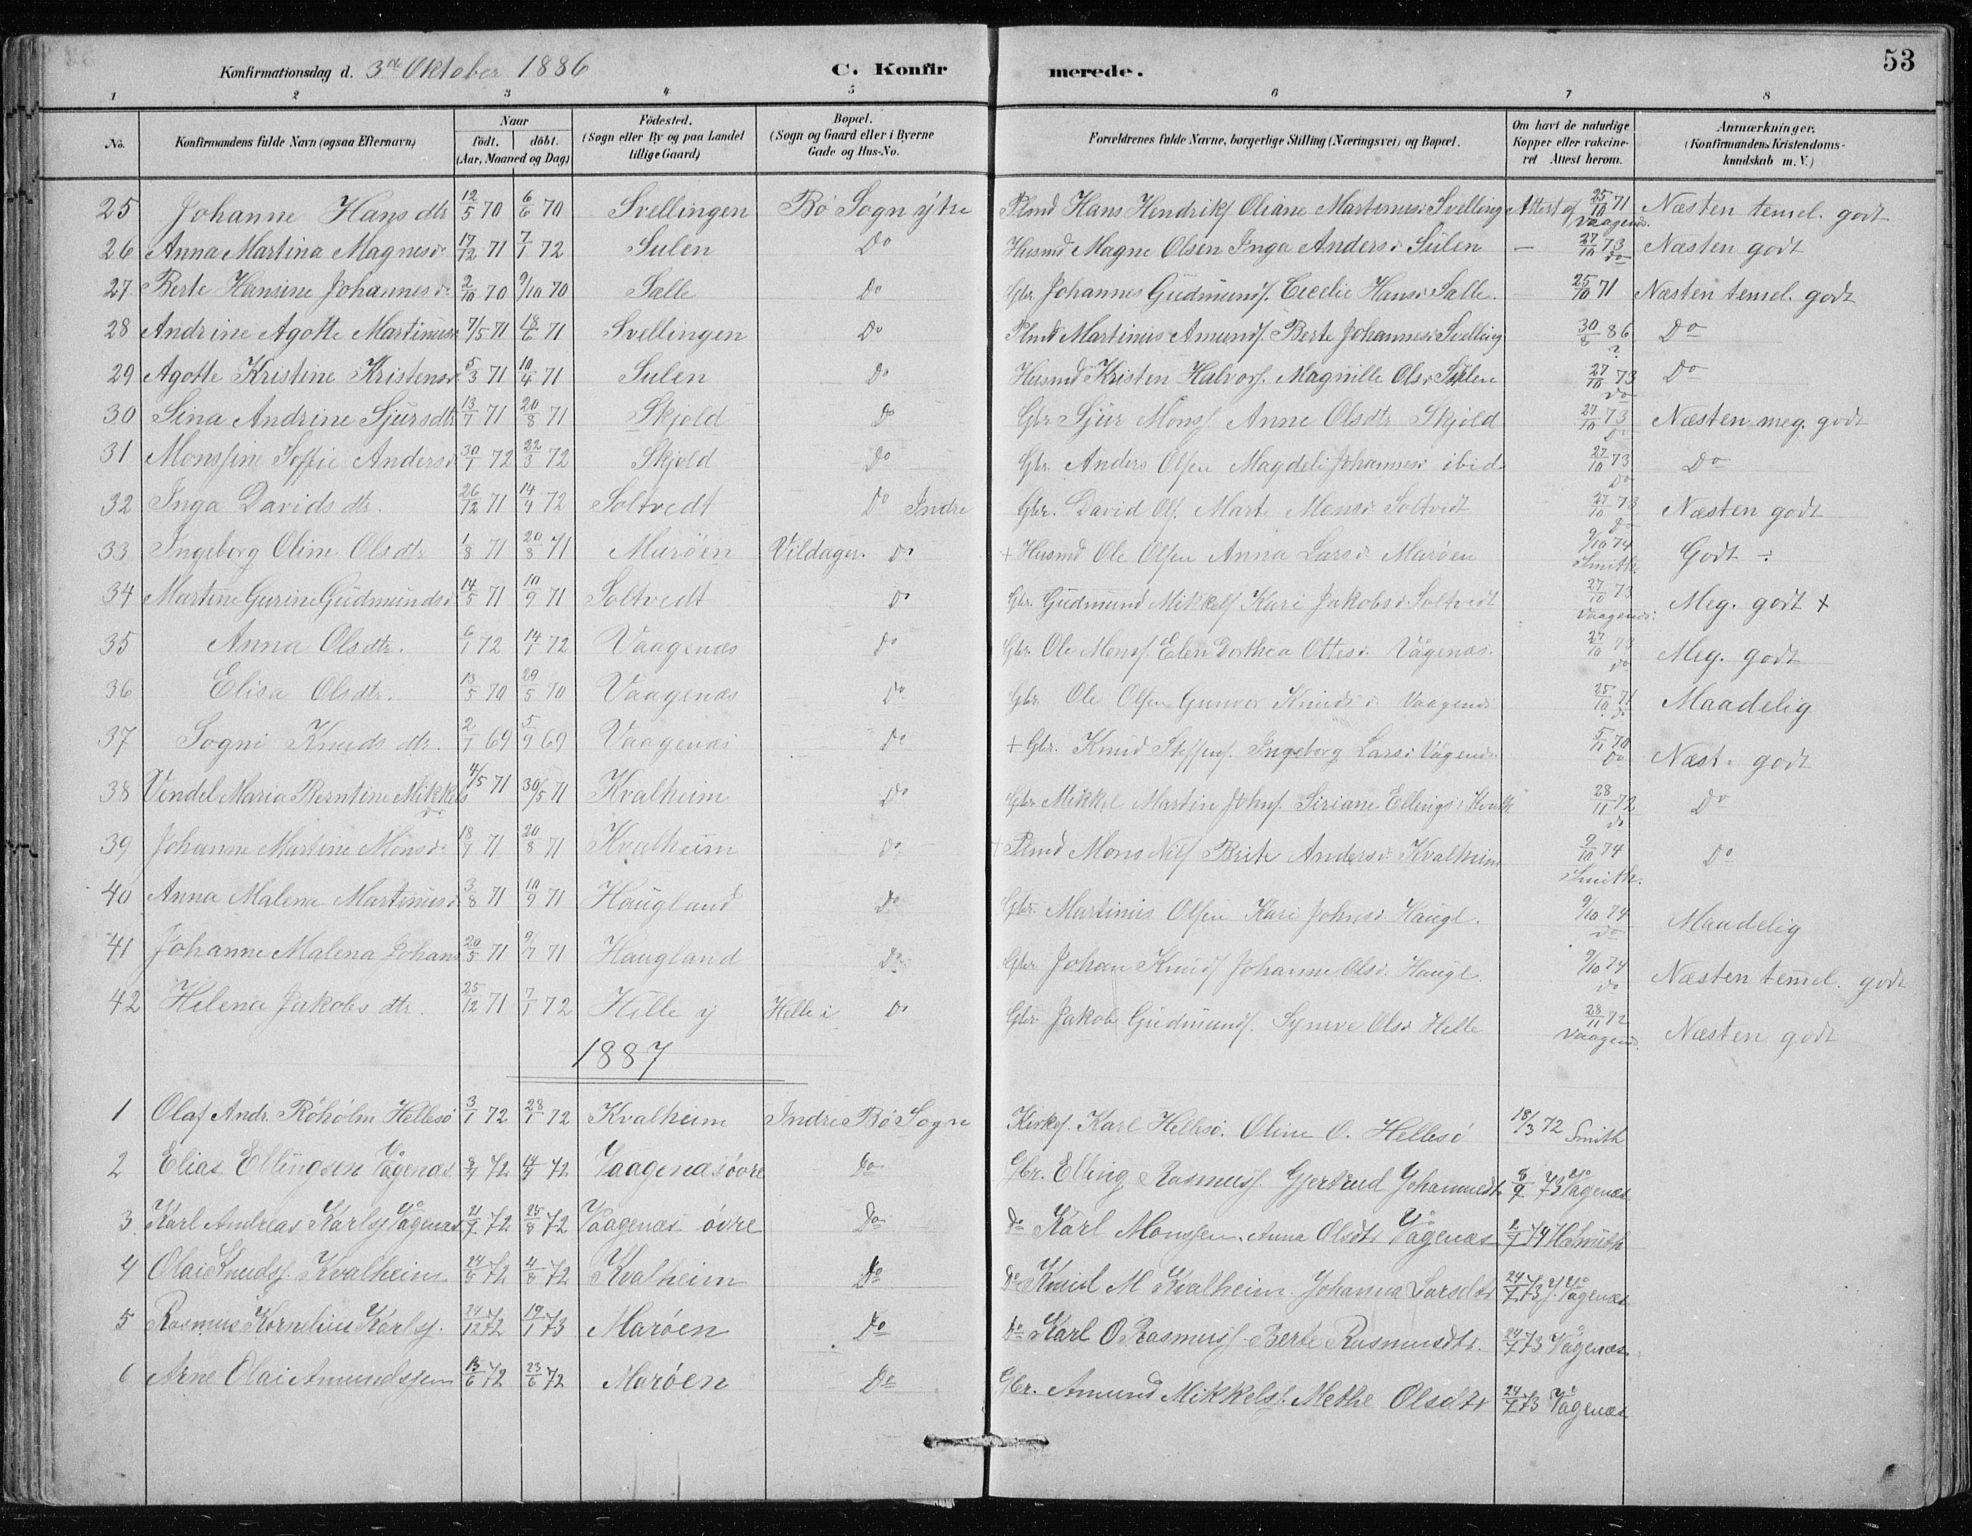 53
Konfirmationsdag d. 3die Oktober 1886 C. Konfirmerede.
1 2 3 4 5 6 7 8
No. Konfirmandens fulde Navn (ogsaa Efternavn) Naar født. døbt. (Aar, Maaned og Dag) Fødested. (Sogn eller By og paa Landet tillige Gaard) Bopæl. (Sogn og Gaard eller i Byerne Gade og Hus-No. Forældrenes fulde Navne, borgerlige Stilling (Næringsvei) og Bopæl. Om havt de naturlige Kopper eller vakcineret Attest herom. Anmærkninger. (Konfirmandens Kristendomskundskab m. V.)
25 Johanne Hansdtr 12/5 70 6/6 70 Svellingen Bø Sogn ytre Plmd Hans Hendriks. Oliane Martinusd. Svelling Attest af 25/10 71 Vaagenæs. Næsten temel. godt
26 Anna Martina Magnesd. 17/12 71 7/1 72 Sulen Do Husmd Magne Olsen Inga Andersd. Sulen — 27/10 73 do Næsten godt
27 Berte Hansine Johannesd. 2/10 70 9/10 70 Sælle Do Gbr. Johannes Gudmunds. Cecelie Hansd. Sælle. — 25/10 71 Næsten temel. godt
28 Andrine Agotte Martinusd. 7/5 71 18/6 71 Svellingen Do Plmd Martinus Amunds. Berte Johannesd. Svelling 30/8 86 Do
29 Agotte Kristine Kristensd. 5/3 71 10/4 71 Sulen Do Husmd Kristen Halvors. Magnille Olsd. Sulen 27/10 73 do Do
30 Sina Andrine Sjursdtr 13/7 71 20/8 71 Skjold Do Gbr. Sjur Mons. Anne Olsdtr Skjold 27/10 73 Do Næsten meg. godt
31 Monssine Soffie Andersd. 30/1 72 22/3 72 Skjold Do Gbr. Anders Olsen Magdeli Johannesd. ibid 27/10 73 Do Do
32 Inga Davidsdtr. 26/12 71 14/4 72 Soltvedt Do Indre Gbr. David Ols. Marte Monsd. Soltvedt 27/10 73 Do Næsten godt
33 Ingeborg Oline Olsdtr 1/8 71 20/8 71 Marøen Vildager. Do + Husmd Ole Olsen Anna Larsd. Marøen 9/10 74 Smith Godt ÷
34 Martine Gurine Gudmundsd. 14/5 71 10/9 71 Soltvedt Do Gbr. Gudmund Mikkels. Kari Jakobsd. Soltvedt 27/10 73 Vaagenæs. Meg. godt +
35 Anna Olsdtr. 6/1 72 14/ 72 Vaagenæs Do Gbr. Ole Mons. Elen Dorthea Ottesd. Vågenæs. 27/10 73 do Meg. godt
36 Elisa Olsdtr. 13/5 70 29/5 70 Vaagenæs Do Gbr. Ole Olsen Gunver Knudsd. Vaagenæs 25/10 71 do Maadelig
37 Sogni Knudsdtr. 2/7 69 5/9 69 Vaagenæs Do + Gbr. Knud Steffens. Ingeborg Larsd. Vågenæs. 5/11 70 Do Næst. godt
38 Vendel Maria Berntine Mikkelsd. 4/5 71 30/5 71 Kvalheim Do Gbr. Mikkel Martin Johns. Siriane Ellingsd. Kvalh 28/11 72 do Do
39 Johanne Martine Monsd. 18/7 71 20/8 71 Kvalheim Do + Plmd Mons Nils. Brite Andersd. Kvalheim 9/10 74 Smith. Do
40 Anna Malena Martinusd. 3/8 71 10/9 71 Haugland Do Gbr. Martinus Olsen Kari Johnsd. Haugl. 9/10 74 do Maadelig
41 Johanne Malena Johans 20/5 71 9/7 71 Haugland Do Gbr. Johan Knuds. Johanne Olsd. Haugl. 9/10 74 do Næsten temel. godt
42 Helena Jakobsdtr. 25/12 71 7/1 72 Helle y Helle i Do Gbr. Jakob Gudmunds. Syneve Olsd. Helle 28/11 72 Vaagenæs. Næsten godt
1887
1 Olaf Andr. Røholm Hellesø 3/1 72 28/1 72 Kvalheim Indre Bø Sogn Kirkes. Karl Hellesø. Oline O. Hellesø 18/3 72 Smith
2 Elias Ellingsen Vågenæs 8/4 72 14/4 72 Vaagenæs øvre Do Gbr. Elling Rasmuss. Gjertrud Johannesdtr 8/9 73 Vågenæs
3 Karl Andreas Karls. Vågenæs 21/7 72 25/8 72 Vaagenæs øvre Do Do Karl Monssen. Anna Olsdtr Vågenæs 2/7 74 Smith
4 Olai Knuds. Kvalheim 24/6 72 4/8 72 Kvalheim Do Do Knud M Kvalheim. Johanna Larsdtr 24/7 73 J. Vågenæs
5 Rasmus Kornelius Karls. 24/12 72 19/1 73 Marøen Do Do Karl O. Rasmuss. Berte Rasmusdtr. 24/7 73 Vågenæs
6 Arne Olai Amundssen 13/6 72 23/6 72 Marøen Do Gbr. Amund Mikkels. Methe Olsdtr 24/7 73 Vågenæs